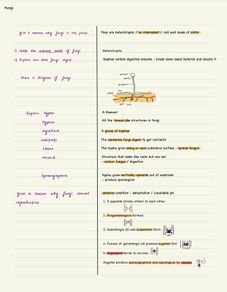 Fungi
give 2 reasons why fungi is not plant
They are heterotrophs / no chloroplast / cell wall made of chitin
i) State the nutrient mode of fungi
Heterotrophic
ii) Explain how does fungi digest
Hyphae contain digestive enzyme - break down dead material and absorb it
Draw a diagram of fungi
Explain hypha
A filament
hyphae
All the thread-like structures in fungi
mycelium
A group of hyphae
substrate
The substance fungi digest to get nutrients
stolon
The hypha grow along or near substance surface - spread fungus
rhizoid
Structure that looks like roots but not
- anchor fungus / digestion
Sporangiophore
Hypha grow vertically upwards out of substrate
- produce sporangium
give a reason why fungi sexual
reproduction
adverse condition - dehydration / unsuitable pH
1. 2 opposite strains attach to each other
2. Progametangium formed
3. Gametangia (n) and suspensors form
4. Fusions of gametangia (n) produce zygotes (2n)
5. Zygospore forms to survive
Zygotes produce sporangiophore and sporangium by meiosis